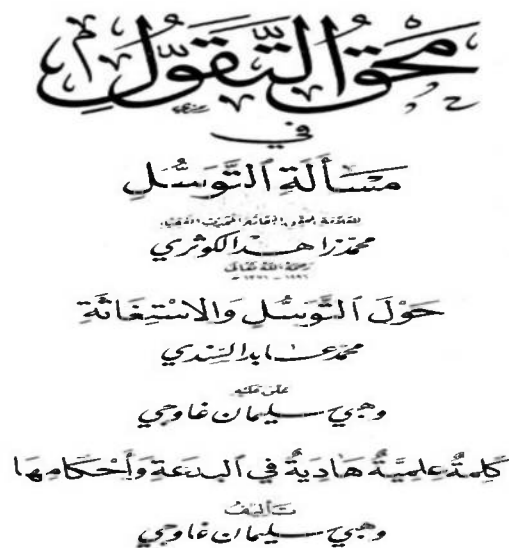 محق التقول
في
مَسْأَلَةِ التَّوَسُّلِ
للعلامة المحقق
محمد زاهد الكوثري
رحمه الله تعالى
حَوْلَ التَّوَسُّلِ وَالاسْتِغَاثَةِ
محمد عابد السندي
علق عليه
وهبي سليمان غاوجي
كَلِمَةٌ عِلْمِيَّةٌ هَادِيَةٌ في البدعَةِ وَأَحْكَامِهَا
تأليف
وهبي سليمان غاوجي